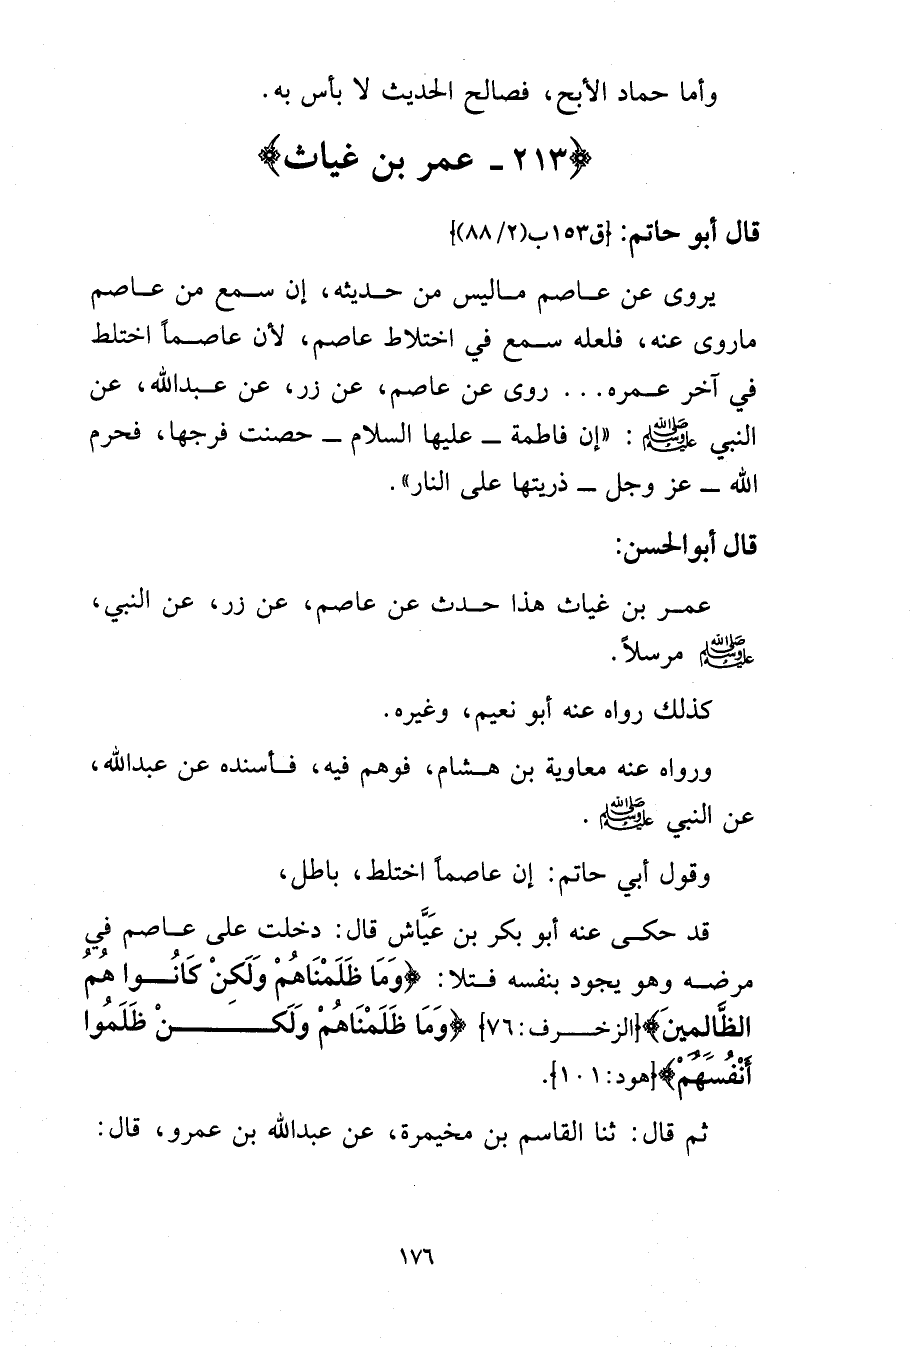 وأما حماد الأبح، فصالح الحديث لا بأس به.
﴿٢١٣ ـ عمر بن غياث﴾
قال أبو حاتم: {ق١٥٣ب(٢/ ٨٨)}
يروى عن عاصم ماليس من حديثه، إن سمع من عاصم
ماروى عنه، فلعله سمع في اختلاط عاصم، لأن عاصماً اختلط
في آخر عمره... روى عن عاصم، عن زر، عن عبدالله، عن
النبي ﷺ : «إن فاطمة ـ عليها السلام ـ حصنت فرجها، فحرم
الله ـ عز وجل ـ ذريتها على النار».
قال أبوالحسن:
عمر بن غياث هذا حدث عن عاصم، عن زر، عن النبي،
ﷺ مرسلاً.
كذلك رواه عنه أبو نعيم، وغيره.
ورواه عنه معاوية بن هشام، فوهم فيه، فأسنده عن عبدالله،
عن النبي ﷺ .
وقول أبي حاتم: إن عاصماً اختلط، باطل،
قد حكى عنه أبو بكر بن عَيَّاش قال: دخلت على عاصم في
مرضه وهو يجود بنفسه فتلا: ﴿وَمَا ظَلَمْنَاهُمْ وَلَكِنْ كَانُوا هُمُ
الظَّالِمِينَ﴾{الزخرف:٧٦} ﴿وَمَا ظَلَمْنَاهُمْ وَلَكِنْ ظَلَمُوا
أَنْفُسَهُمْ﴾{هود:١٠١}.
ثم قال: ثنا القاسم بن مخيمرة، عن عبدالله بن عمرو، قال:
١٧٦